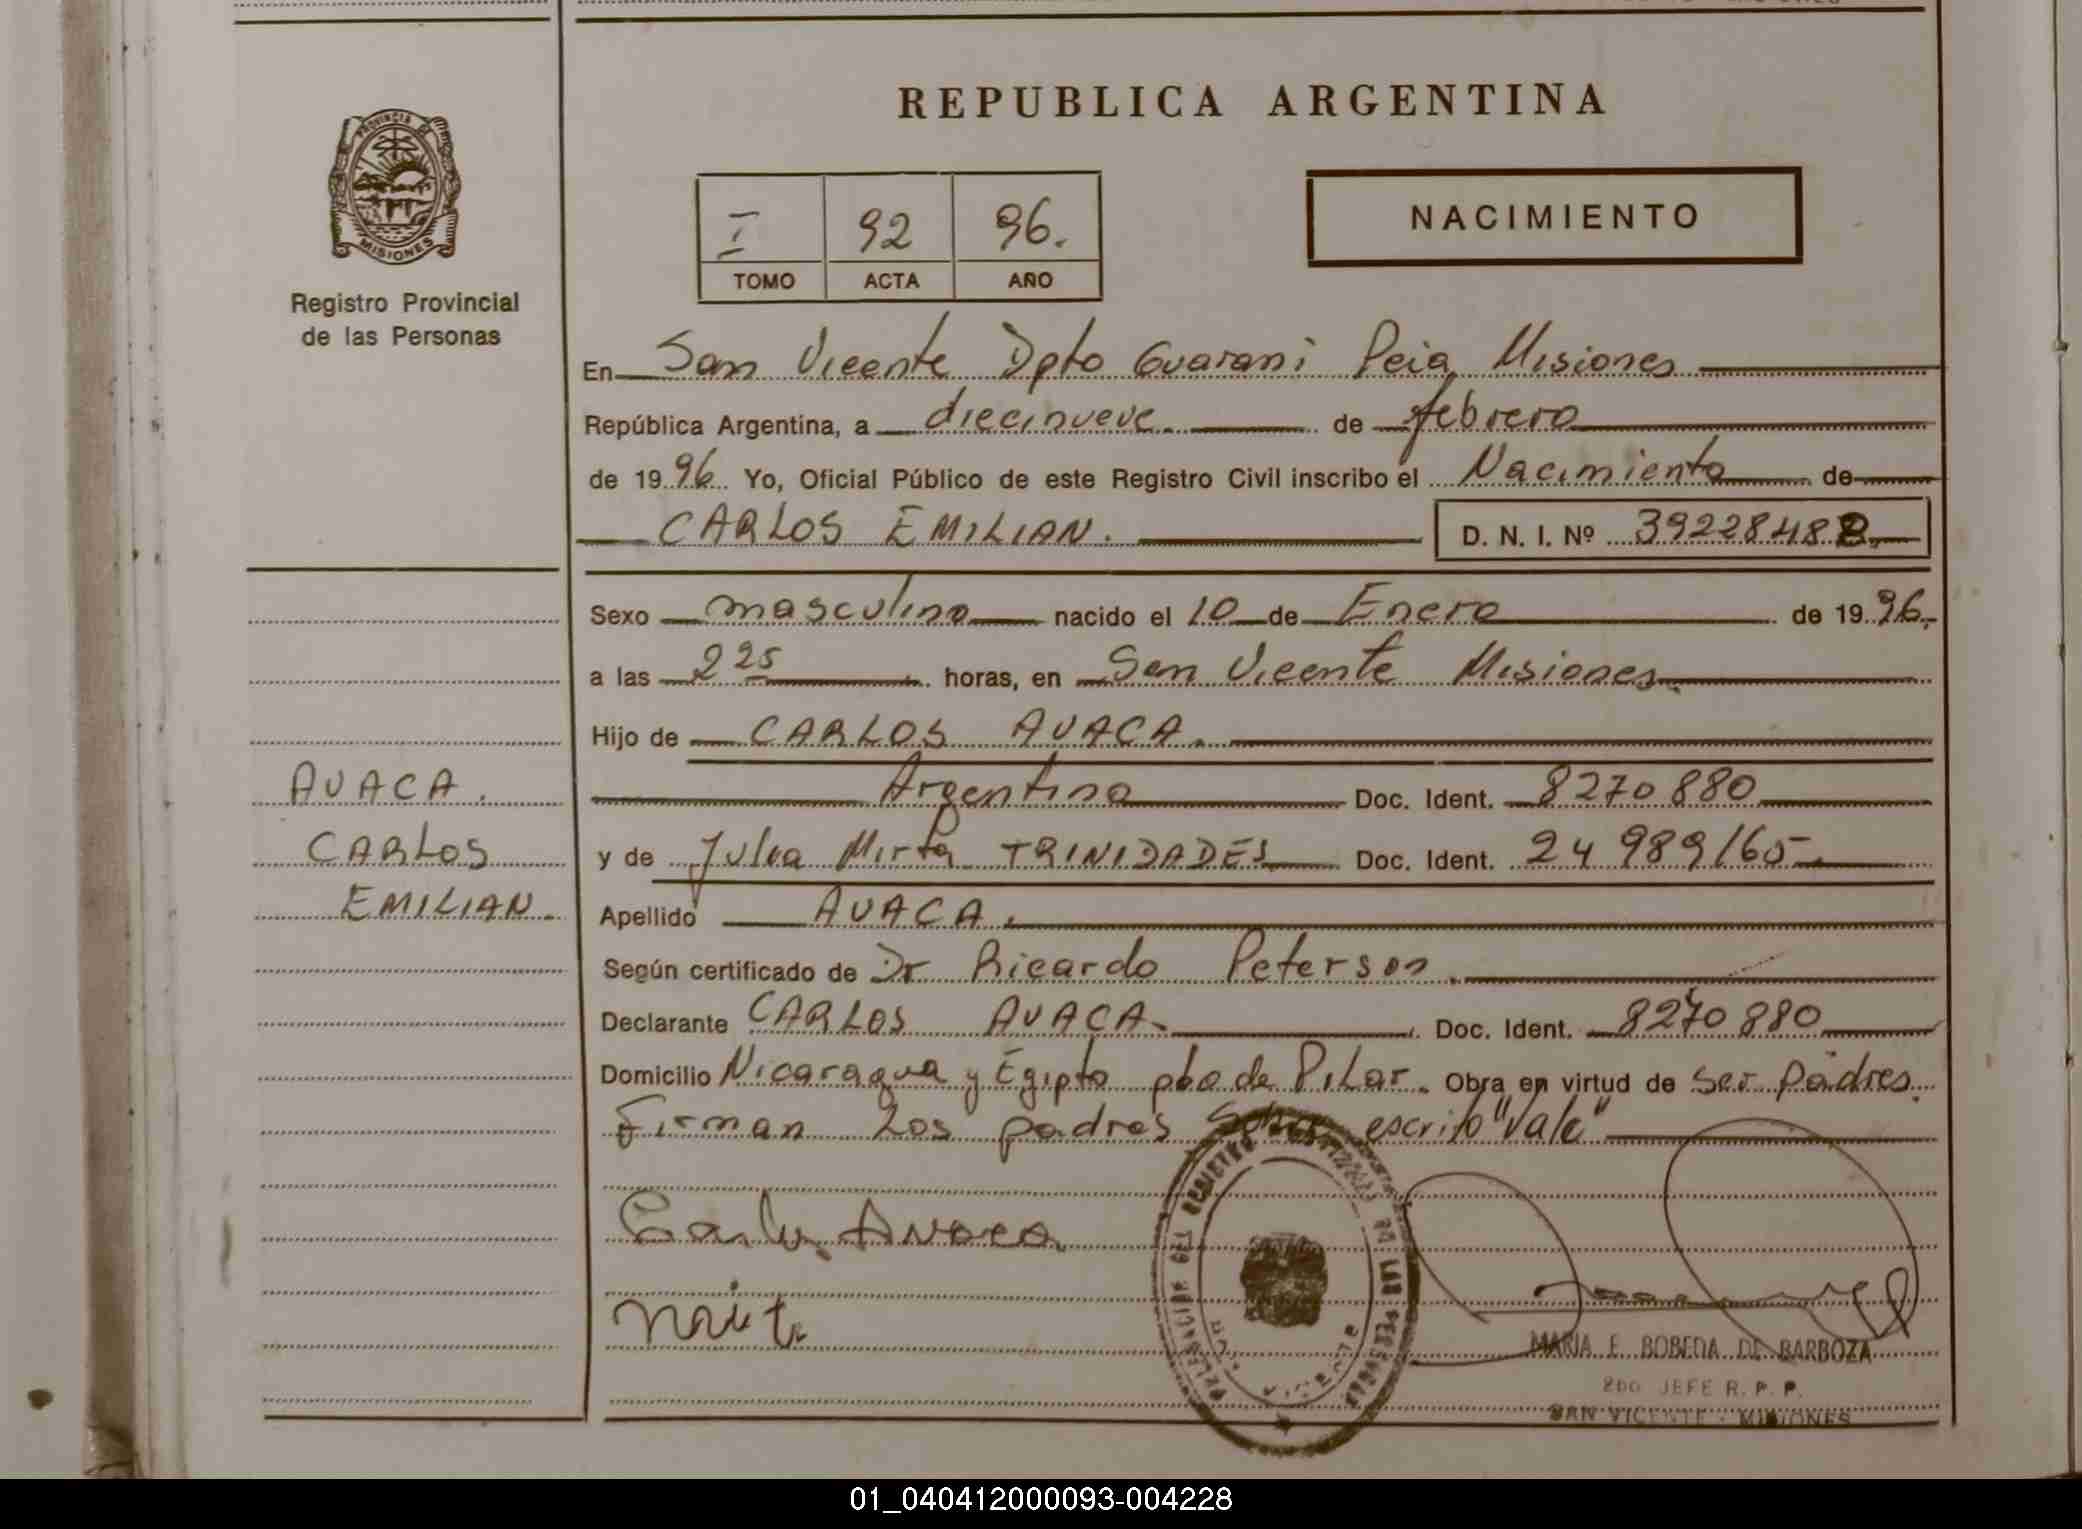 REPUBLICA ARGENTINA
PROVINCIA DE
MISIONES
Registro Provincial
de las Personas
I 92 96.
TOMO ACTA AÑO
NACIMIENTO
En San Vicente Dpto Guarani Pcia Misiones
República Argentina, a diecinueve de febrero
de 1996 Yo, Oficial Público de este Registro Civil inscribo el Nacimiento de
CARLOS EMILIAN. D. N. I. Nº 39228482.
Sexo masculino nacido el 10 de Enero de 1996.
a las 2 25 horas, en San Vicente Misiones.
Hijo de CARLOS AVACA.
Argentina Doc. Ident. 8270880
y de Julia Mirta TRINIDADES Doc. Ident. 24989165.
Apellido AVACA.
Según certificado de Dr Ricardo Peterson.
Declarante CARLOS AVACA Doc. Ident. 8270880
Domicilio Nicaragua y Egipto pbo de Pilar. Obra en virtud de ser padres.
Firman Los padres escrito "Vale"
AVACA.
CARLOS
EMILIAN.
Carlos Avaca
DELEGACION DEL REGISTRO DE LAS PERSONAS
VICENTE
MARIA E. BOBEDA DE BARBOZA
2DO JEFE R. P. P.
SAN VICENTE - MISIONES
01_040412000093-004228